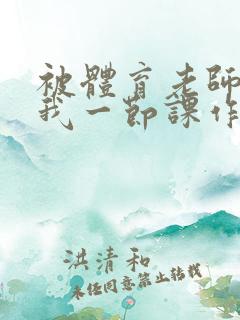 被體育老師
我一節課作
洪清和
未任同意禁止转载